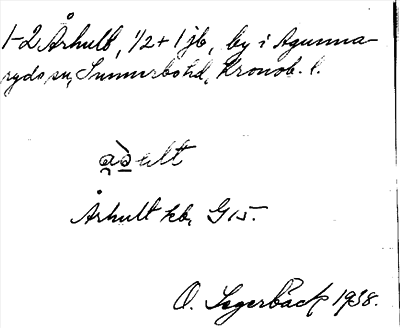 1-2 Århult, 1/2 + 1 jb, by i Agunna-
ryds sn, Sunnerbo hd, Kronob. l.
Århult kb, G15.
O. Segerbäck 1938.